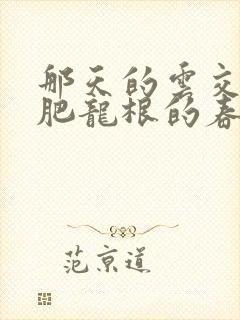 那天的雲交
肥龍根的春
范京道